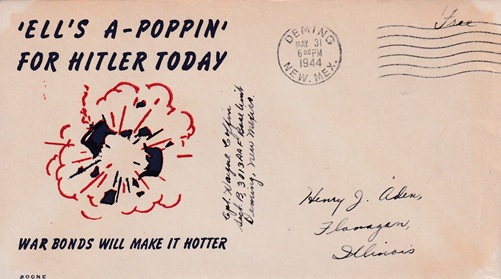 'ELL'S A-POPPIN'
FOR HITLER TODAY
WAR BONDS WILL MAKE IT HOTTER
BOONE
DEMING
MAY 31
6 PM
1944
NEW. MEX.
Free
Cpl. Wayne Coffin
Sect. B, 3013 AAF Base Unit
Deming, New Mexico.
Henry J. Aden,
Flanagan,
Illinois